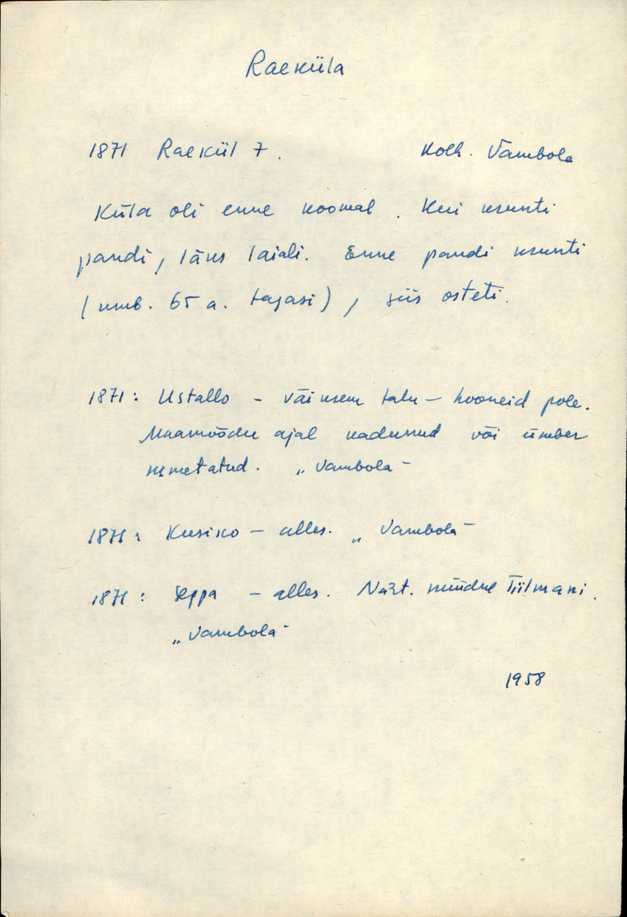 Raeküla
1871 Raekül 7. Kolh. Vambola
Küla oli enne koomal. Kui krunti
pandi, läks laiali. Enne pandi krunti
(umb. 65 a. tagasi), siis osteti.
1871: Ustallo - väiksem talu - hooneid pole.
Maamõõdu ajal kadunud või ümber
nimetatud. „Vambola"
1871: Kusiko - alles. „Vambola"
1871: Seppa - alles. nüüdne Tiilmani.
„Vambola"
1958